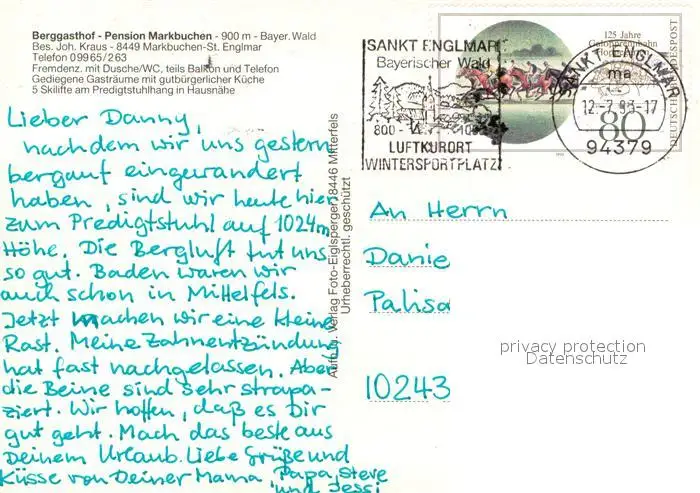 Berggasthof - Pension Markbuchen - 900 m - Bayer. Wald
Bes. Joh. Kraus - 8449 Markbuchen-St. Englmar
Telefon 09965/263
Fremdenz. mit Dusche/WC, teils Balkon und Telefon
Gediegene Gasträume mit gutbürgerlicher Küche
5 Skilifte am Predigtstuhlhang in Hausnähe
Lieber Danny,
nachdem wir uns gestern
bergauf eingewandert
haben, sind wir heute hier
zum Predigtstuhl auf 1024m
Höhe. Die Bergluft tut uns
so gut. Baden waren wir
auch schon in Mittelfels.
Jetzt machen wir eine kleine
Rast. Meine Zahnentzündung
hat fast nachgelassen. Aber
die Beine sind sehr strapa-
ziert. Wir hoffen, daß es Dir
gut geht. Mach das beste aus
Deinem Urlaub. Liebe Grüße und
Küsse von Deiner Mama, Papa, Steve
und Jessi
Aufn. u. Verlag Foto-Eiglsperger, 8446 Mitterfels
Urheberrechtl. geschützt
SANKT ENGLMAR
Bayerischer Wald
800 -
LUFTKURORT
WINTERSPORTPLATZ
125 Jahre
DEUTSCHE BUNDESPOST
80
SANKT ENGLMAR
ma
12.-7.93-17
94379
An Herrn
Danie
Palisa
10243
privacy protection
Datenschutz